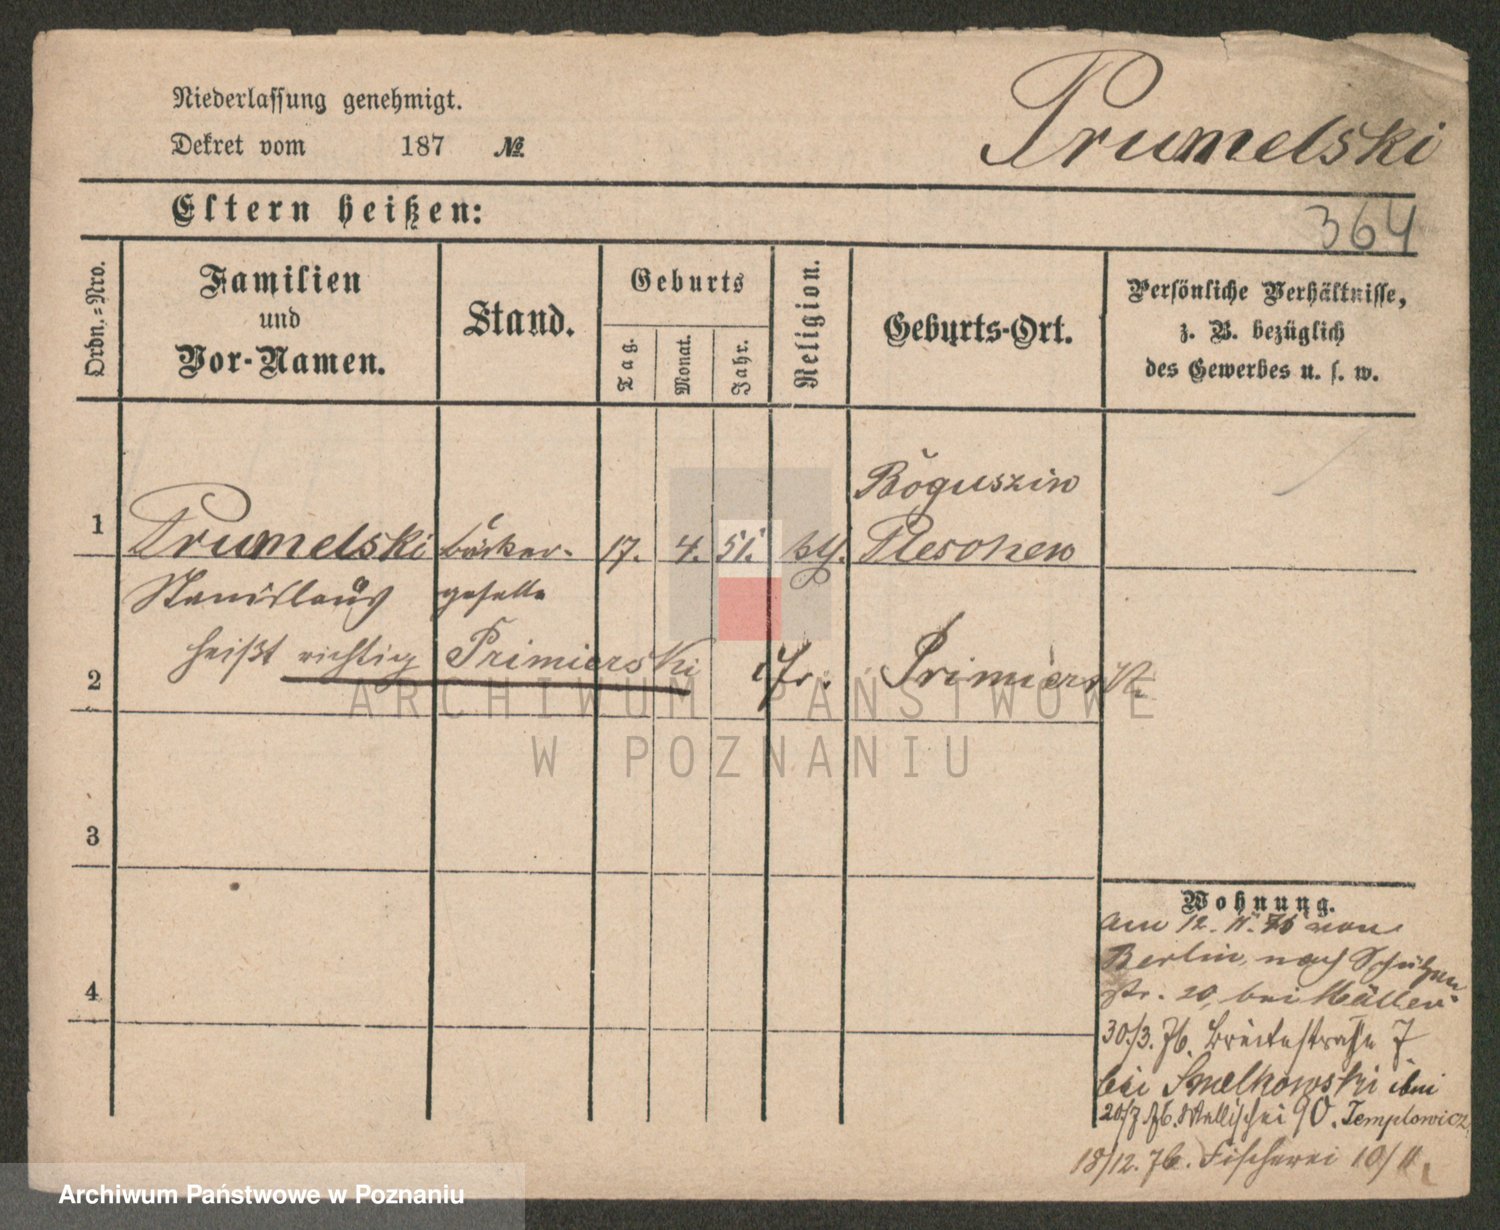 Niederlassung genehmigt.
Dekret vom 187 №
Prumelski
Eltern heißen:
364
Ordn.-Nro.
Familien und Vor-Namen.
Stand.
Geburts
Tag.
Monat.
Jahr.
Religion.
Geburts-Ort.
Persönliche Verhältnisse,
z. B. bezüglich
des Gewerbes u. s. w.
Boguszin
1 Prumelski Bäcker- 17. 4. 51. kth. Pleschen
Stanislaus geselle
heißt richtig Primierski
2 cfr. Primierski
3
4
Wohnung.
am 12. 11. 75 von
Berlin, nach Schützen
str. 20, bei Müller.
30/3. 76. Breitestraße 7
bei Smelkowski
20/7 76. Wallischei 90. Templowicz
18/12. 76. Fischerei 10/11
ARCHIWUM PAŃSTWOWE
W POZNANIU
Archiwum Państwowe w Poznaniu